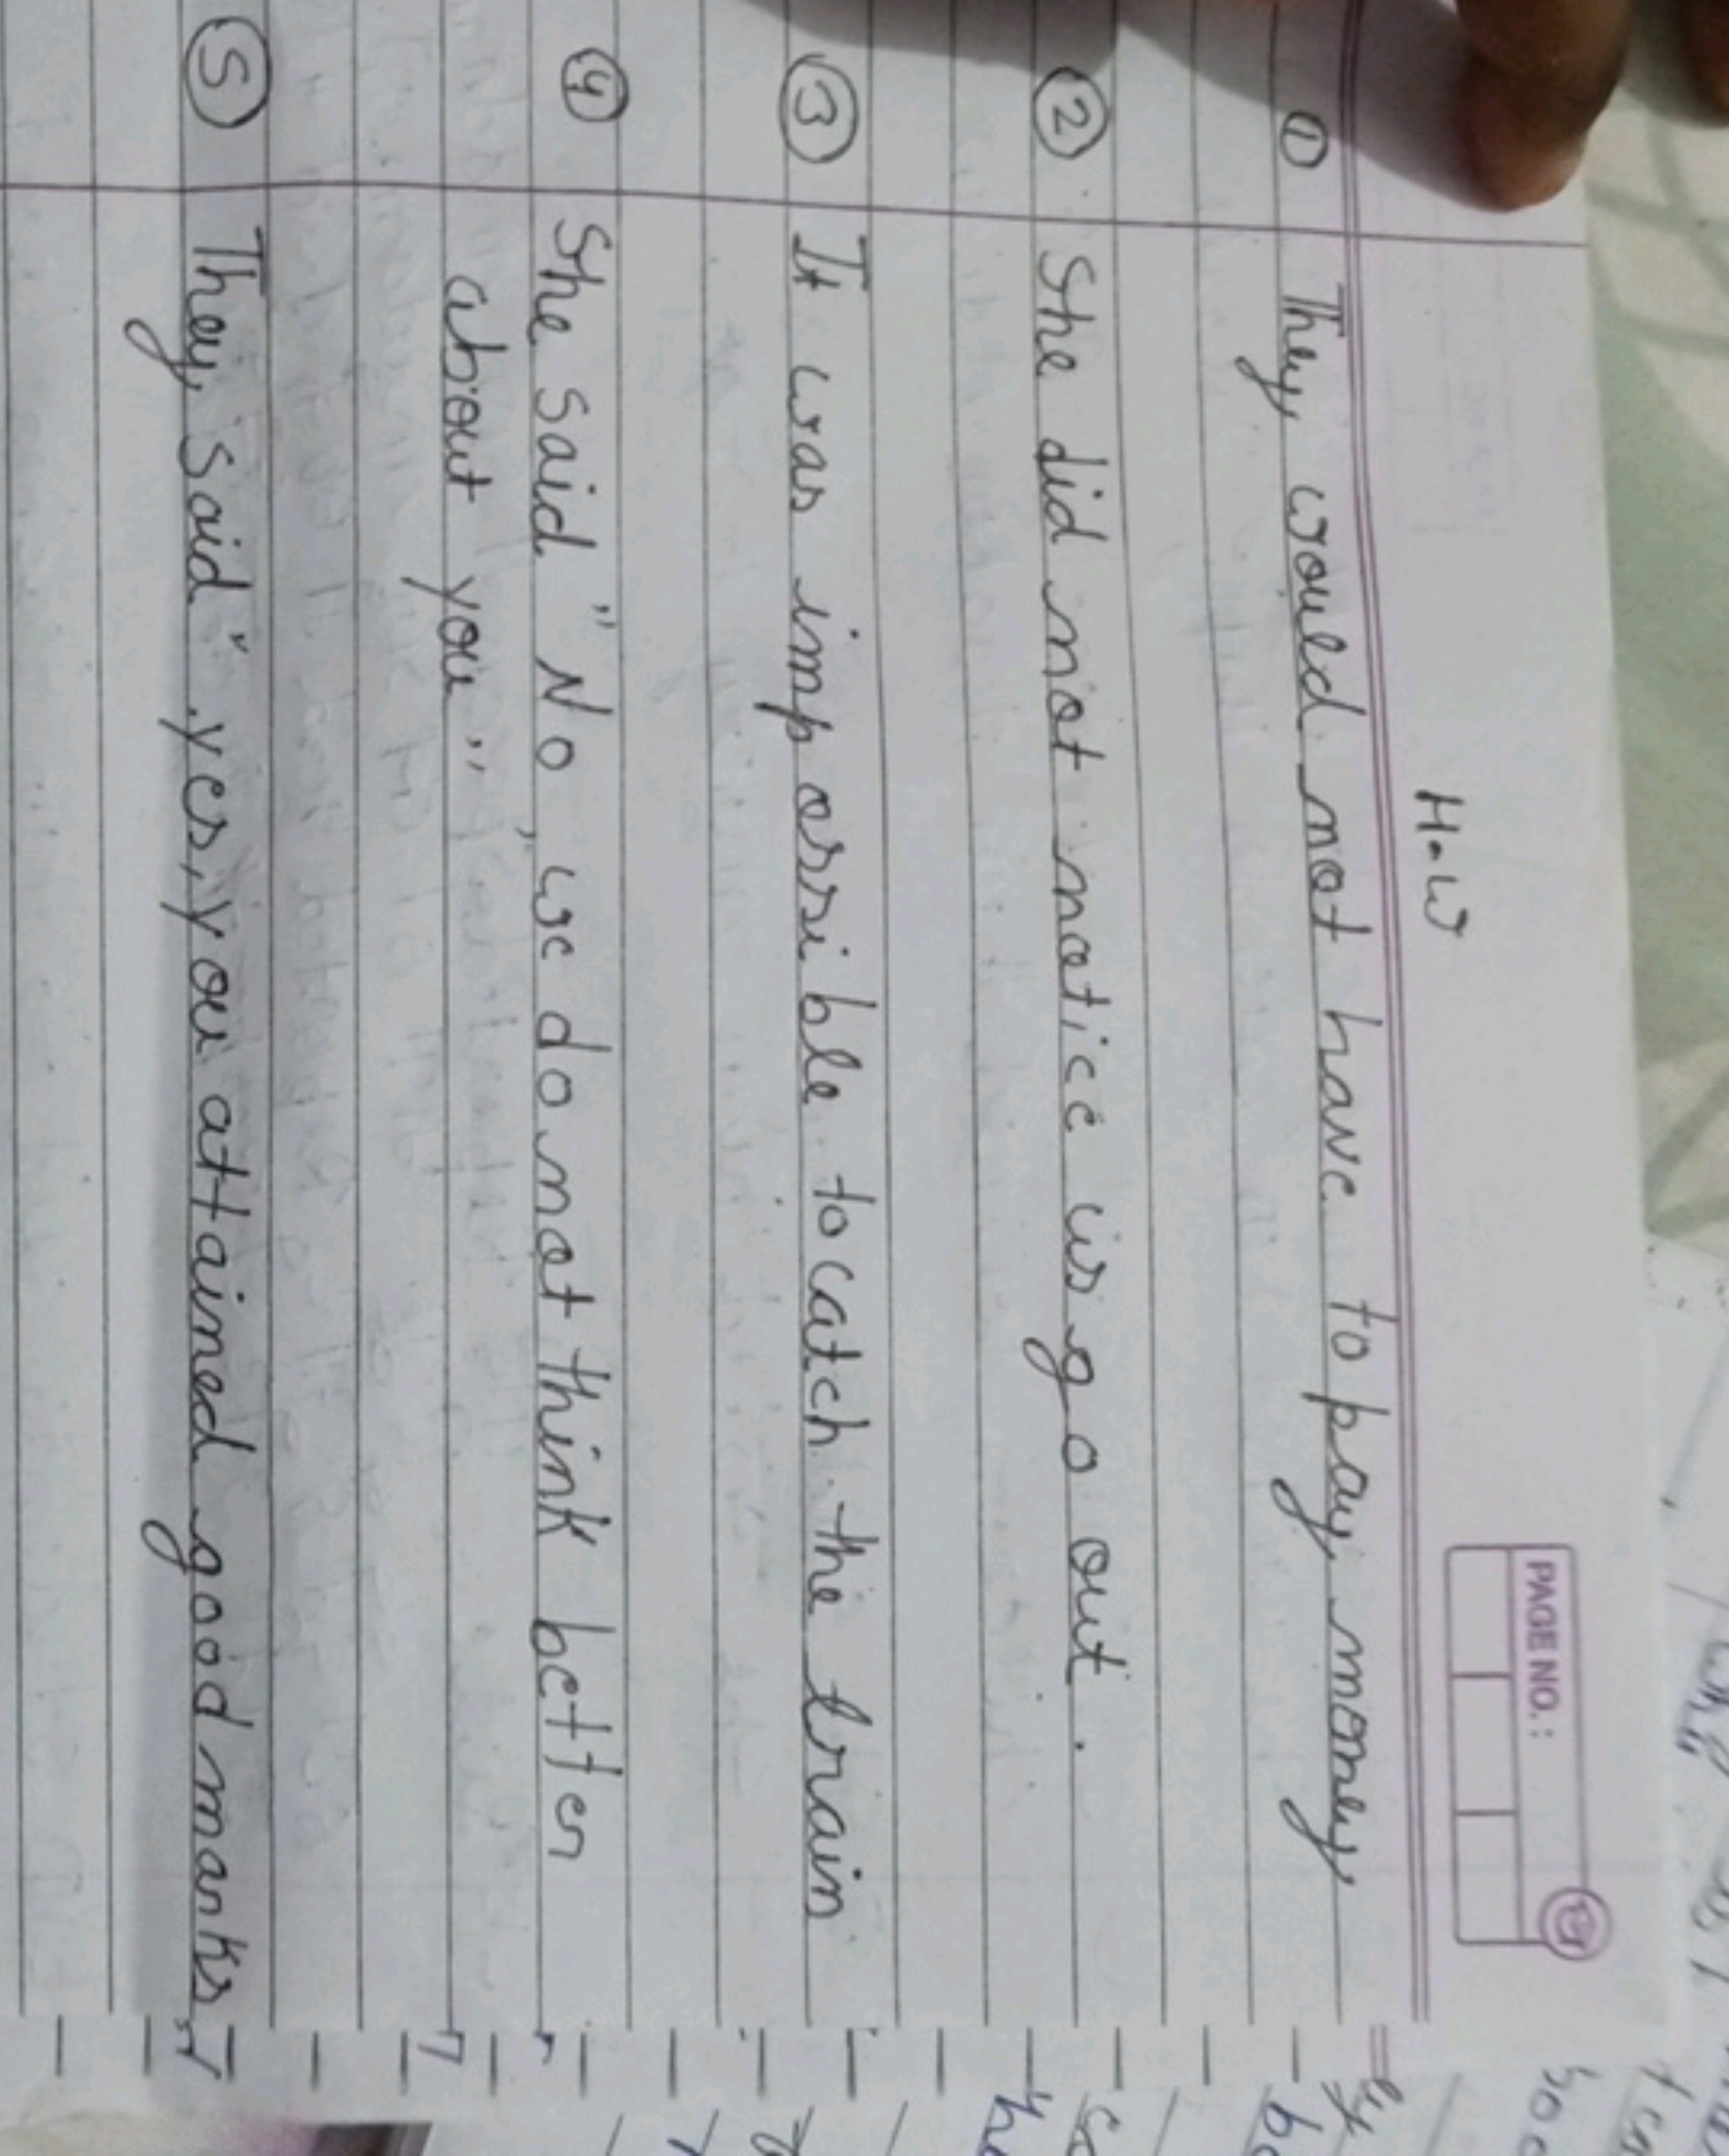 PAGE NO.:
H.W
① They would not have to pay money
② She did not notice is go out.
③ It was impossible to catch the train
④ She said "No, we do not think better
about you"
⑤ They said "yes, you attained good marks